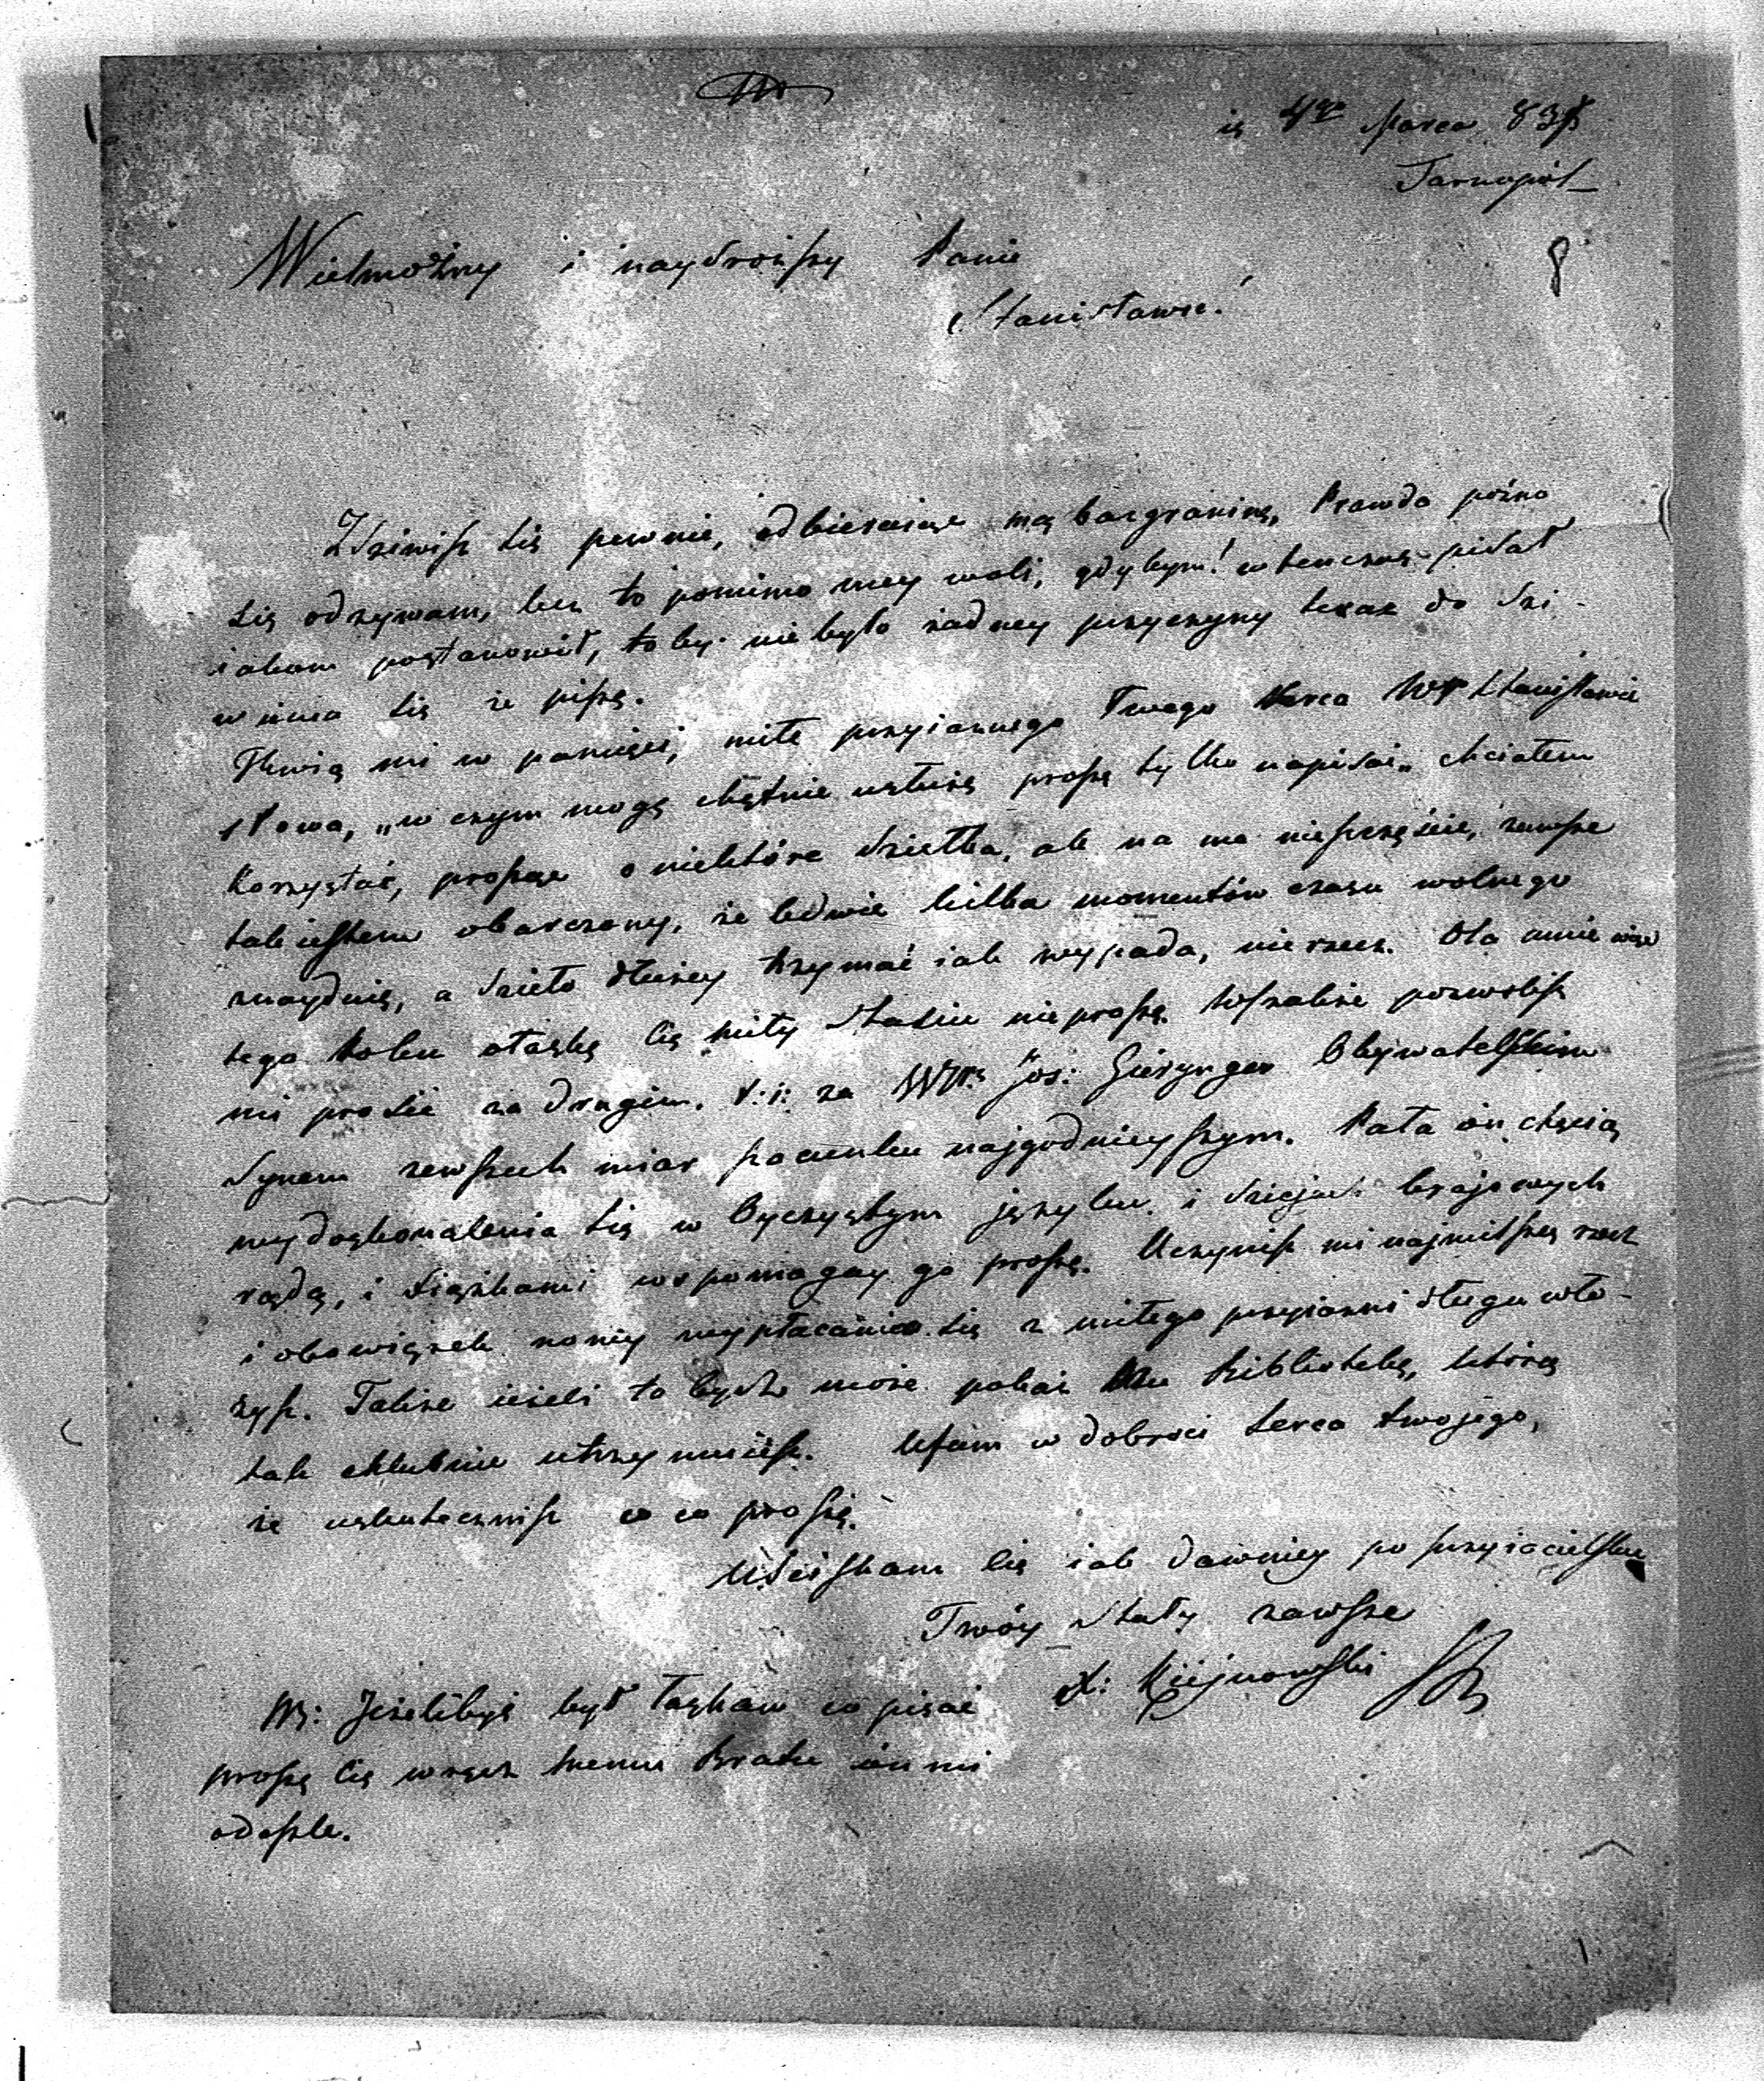 4go Marca 83
Tarnopol
Wielmożny i naydroższy Panie
Stanisławie!
8
Zdziwisz się pewnie, odbieraiąc mą bazgraninę, Prawda pozno
się odzywam, lecz to pomimo mey woli, gdybym! wtenczas pisał
iakom postanowił, toby niebyło żadney przyczyny teraz do dzi-
wienia się że piszę.
Tkwią mi w pamięci, miłe przyiaznego Twego Serca Stanisławie
słowa, „w czym mogę chętnie usłużę proszę tylko napisać„ chciałem
korzystać, prosząc o niektóre dziełka, ale na me nieszczęście, zawsze
tak iestem obarczony, że ledwie kilka momentów czasu wolnego
znayduię, a dzieło dłużey trzymać iak wypada, nie rzecz. Dla mnie więc
tego roku o łaskę Cię miły Stasiu nie proszę. Wszakże pozwolisz
mi prosić za drugim. t: i: za Józ: Gierynger Obywatelskim
Synem zewszech miar szacunku najgodnieyszym. Pała on chęcią
wydoskonalenia się w Oyczystym języku i dziejach krajowych
radą, i książkami wspomagay go proszę. Uczynisz mi najmilszą rzecz
i obowiązek nowy wypłacania się z miłego przyiazni długu wło-
żysz. Także ieżeli to bydź może pokaż Mu Bibliotekę, którą
tak chlubnie utrzymuiesz. Ufam w dobroci Serca twojego,
że uskutecznisz o co proszę.
Uściskam Cię iak dawniey po przyiacielsku
Twóy Stały zawsze
X: Kiijnowski
Jeżelibyś był łaskaw co pisać
proszę Cię wręcz memu Bratu on mi
odeszle.